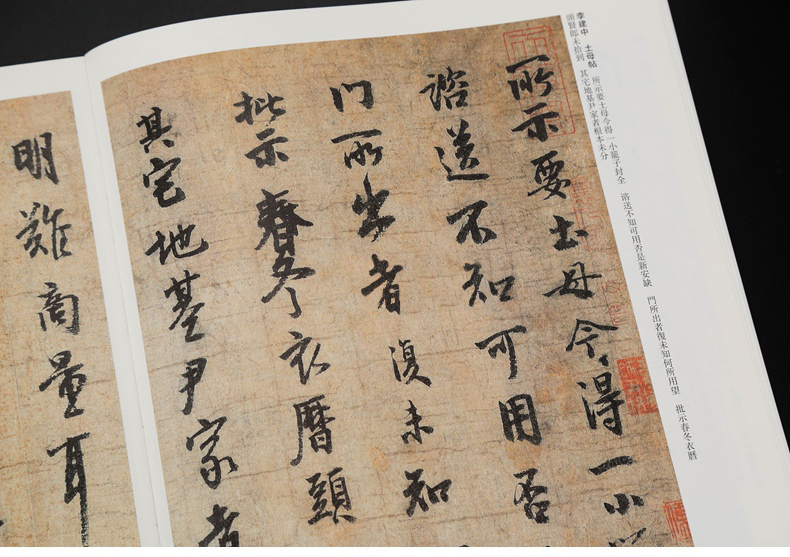 李建中 土母帖 所示要土母今得一小籠子封全 諮送不知可用否是新安缺 門所出者復未知何所用望 批示春冬衣曆
頭賢郎未拾到 其宅地基尹家者根本未分
所示要土母今得一小
諮送不知可用否
門所出者復未知
批示春冬衣曆頭
其宅地基尹家者
明難商量耳